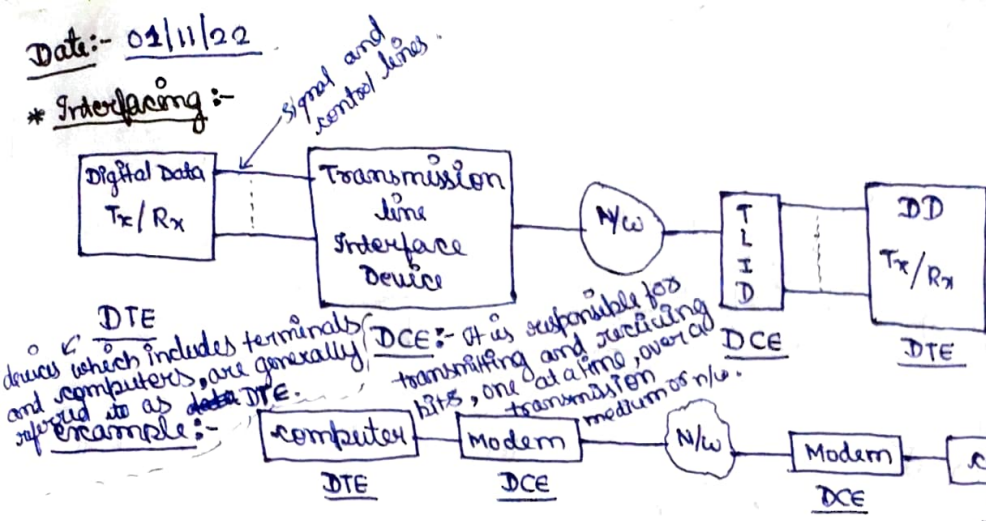 Date:- 01/11/22
* Interfacing :-
signal and
control lines.
Digital Data
Tx/Rx
Transmission
line
Interface
Device
N/w
T
L
I
D
DD
Tx/Rx
DTE
DCE
DTE
devices which includes terminals
and computers, are generally
referred to as DTE.
DCE:- It is responsible for
transmitting and receiving
bits, one at a time, over a
transmission
medium or n/w.
example:-
computer
Modem
N/w
Modem
C
DTE
DCE
DCE